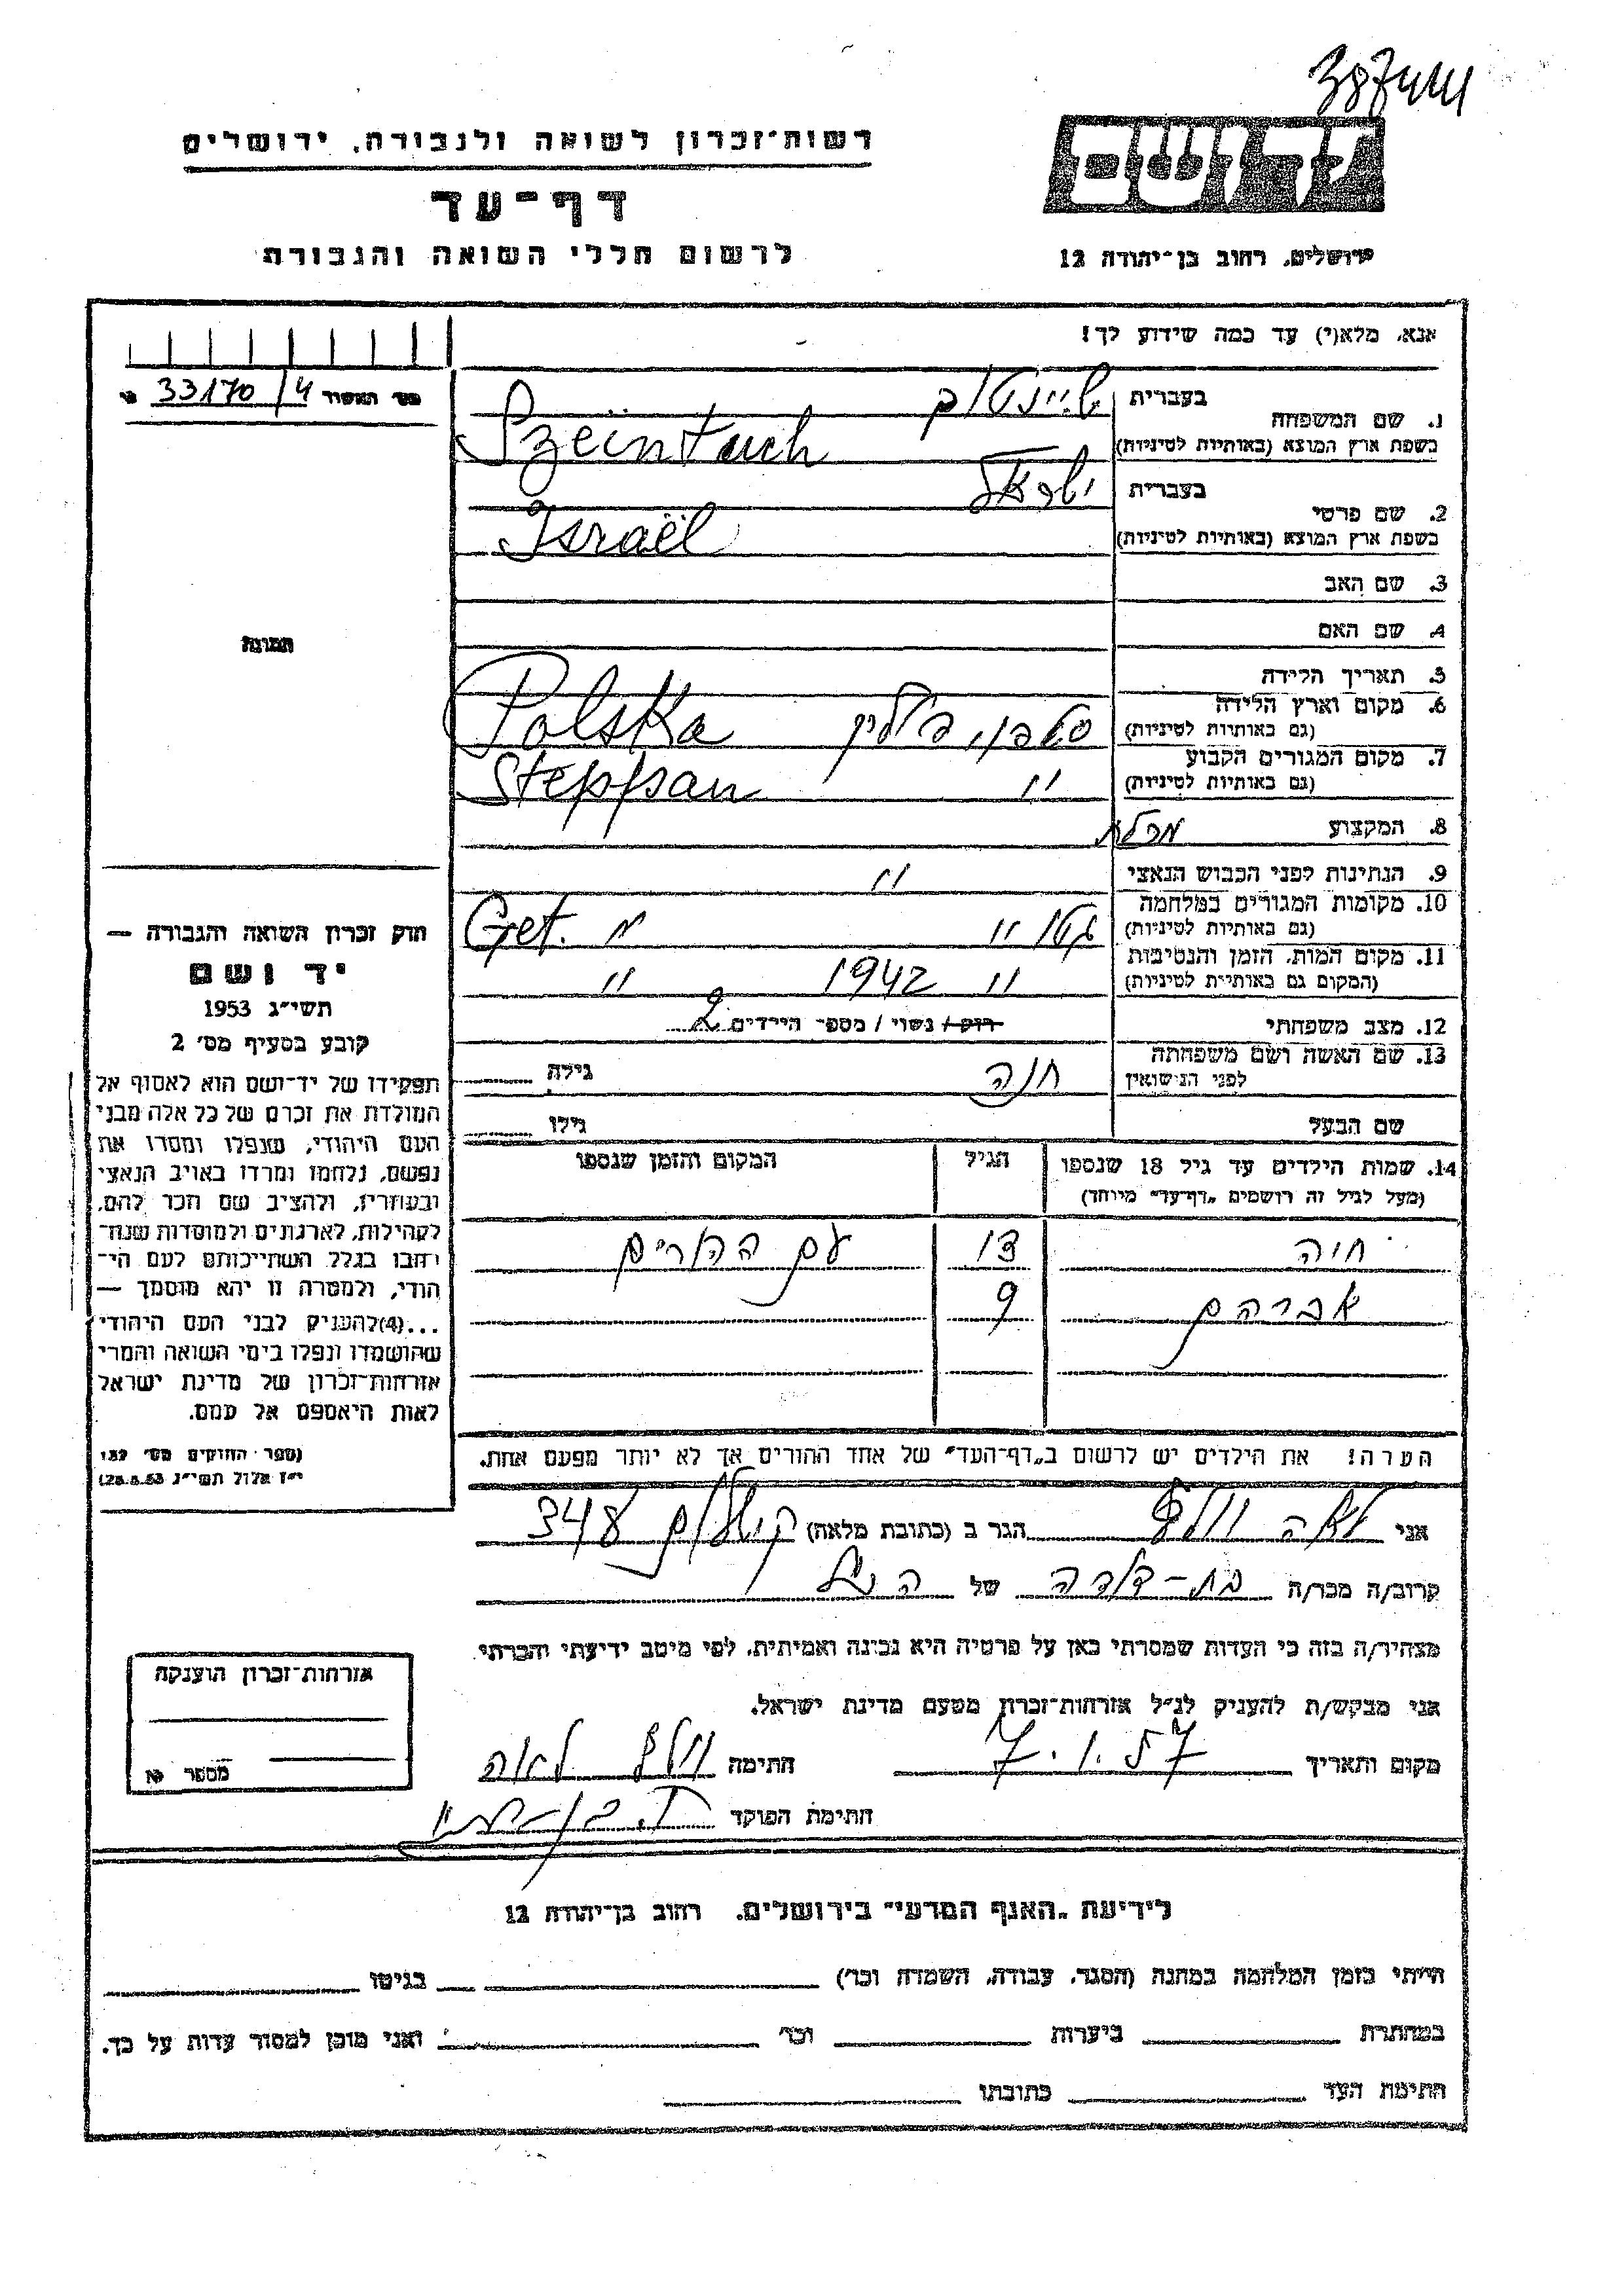 387444
רשות־זכרון לשואה ולגבורה, ירושלים
דף־עד
לרשום חללי השואה והגבורה
יד ושם
ירושלים, רחוב בן־יהודה 12
אנא, מלא(י) עד כמה שידוע לך!
מס׳ התאשור 33170/4
1. שם המשפחה
בעברית שיינטוך
בשפת ארץ המוצא (באותיות לטיניות) Szeintuch
2. שם פרטי
בעברית ישראל
בשפת ארץ המוצא (באותיות לטיניות) Israël
3. שם האב
4. שם האם
5. תאריך הלידה
6. מקום וארץ הלידה
(גם באותיות לטיניות) סטפן, פולין Polska
7. מקום המגורים הקבוע
(גם באותיות לטיניות) " Steppan
8. המקצוע
9. הנתינות לפני הכבוש הנאצי "
10. מקומות המגורים במלחמה
(גם באותיות לטיניות) גטו " Get. "
11. מקום המות, הזמן והנסיבות
(המקום גם באותיות לטיניות) " 1942 "
12. מצב משפחתי רווק / נשוי / מספר הילדים 2
13. שם האשה ושם משפחתה
לפני הנישואין חנה גילה
שם הבעל גילו
14. שמות הילדים עד גיל 18 שנספו
(מעל לגיל זה רושמים „דף־עד״ מיוחד)
הגיל
המקום והזמן שנספו
חיה 13 עם ההורים
אברהם 9
הערה! את הילדים יש לרשום ב„דף־העד״ של אחד ההורים אך לא יותר מפעם אחת.
תמונה
חוק זכרון השואה והגבורה —
יד ושם
תשי״ג 1953
קובע בסעיף מס׳ 2
תפקידו של יד־ושם הוא לאסוף אל
המולדת את זכרם של כל אלה מבני
העם היהודי, שנפלו ומסרו את
נפשם, נלחמו ומרדו באויב הנאצי
ובעוזריו, ולהציב שם וזכר להם,
לקהילות, לארגונים ולמוסדות שנח־
רבו בגלל השתייכותם לעם הי־
הודי, ולמטרה זו יהא מוסמך —
...(4)להעניק לבני העם היהודי
שהושמדו ונפלו בימי השואה והמרי
אזרחות־זכרון של מדינת ישראל
לאות היאספם אל עמם.
(ספר החוקים מס׳ 132
י״ז אלול תשי״ג 28.8.53)
אני לאה וולף הגר ב (כתובת מלאה) 348
קרוב/ה מכר/ה בת־דודה של הנ״ל
מצהיר/ה בזה כי העדות שמסרתי כאן על פרטיה היא נכונה ואמיתית, לפי מיטב ידיעתי והכרתי
אני מבקש/ת להעניק לנ״ל אזרחות־זכרון מטעם מדינת ישראל.
מקום ותאריך 7.1.57 חתימה וולף לאה
חתימת הפוקד
אזרחות־זכרון הוענקה
מספר
לידיעת „האגף המדעי״ בירושלים, רחוב בן־יהודה 12
הייתי בזמן המלחמה במחנה (הסגר, עבודה, השמדה וכו׳) בגיטו
במחתרת ביערות וכו׳ ואני מוכן למסור עדות על כך.
חתימת העד כתובתו